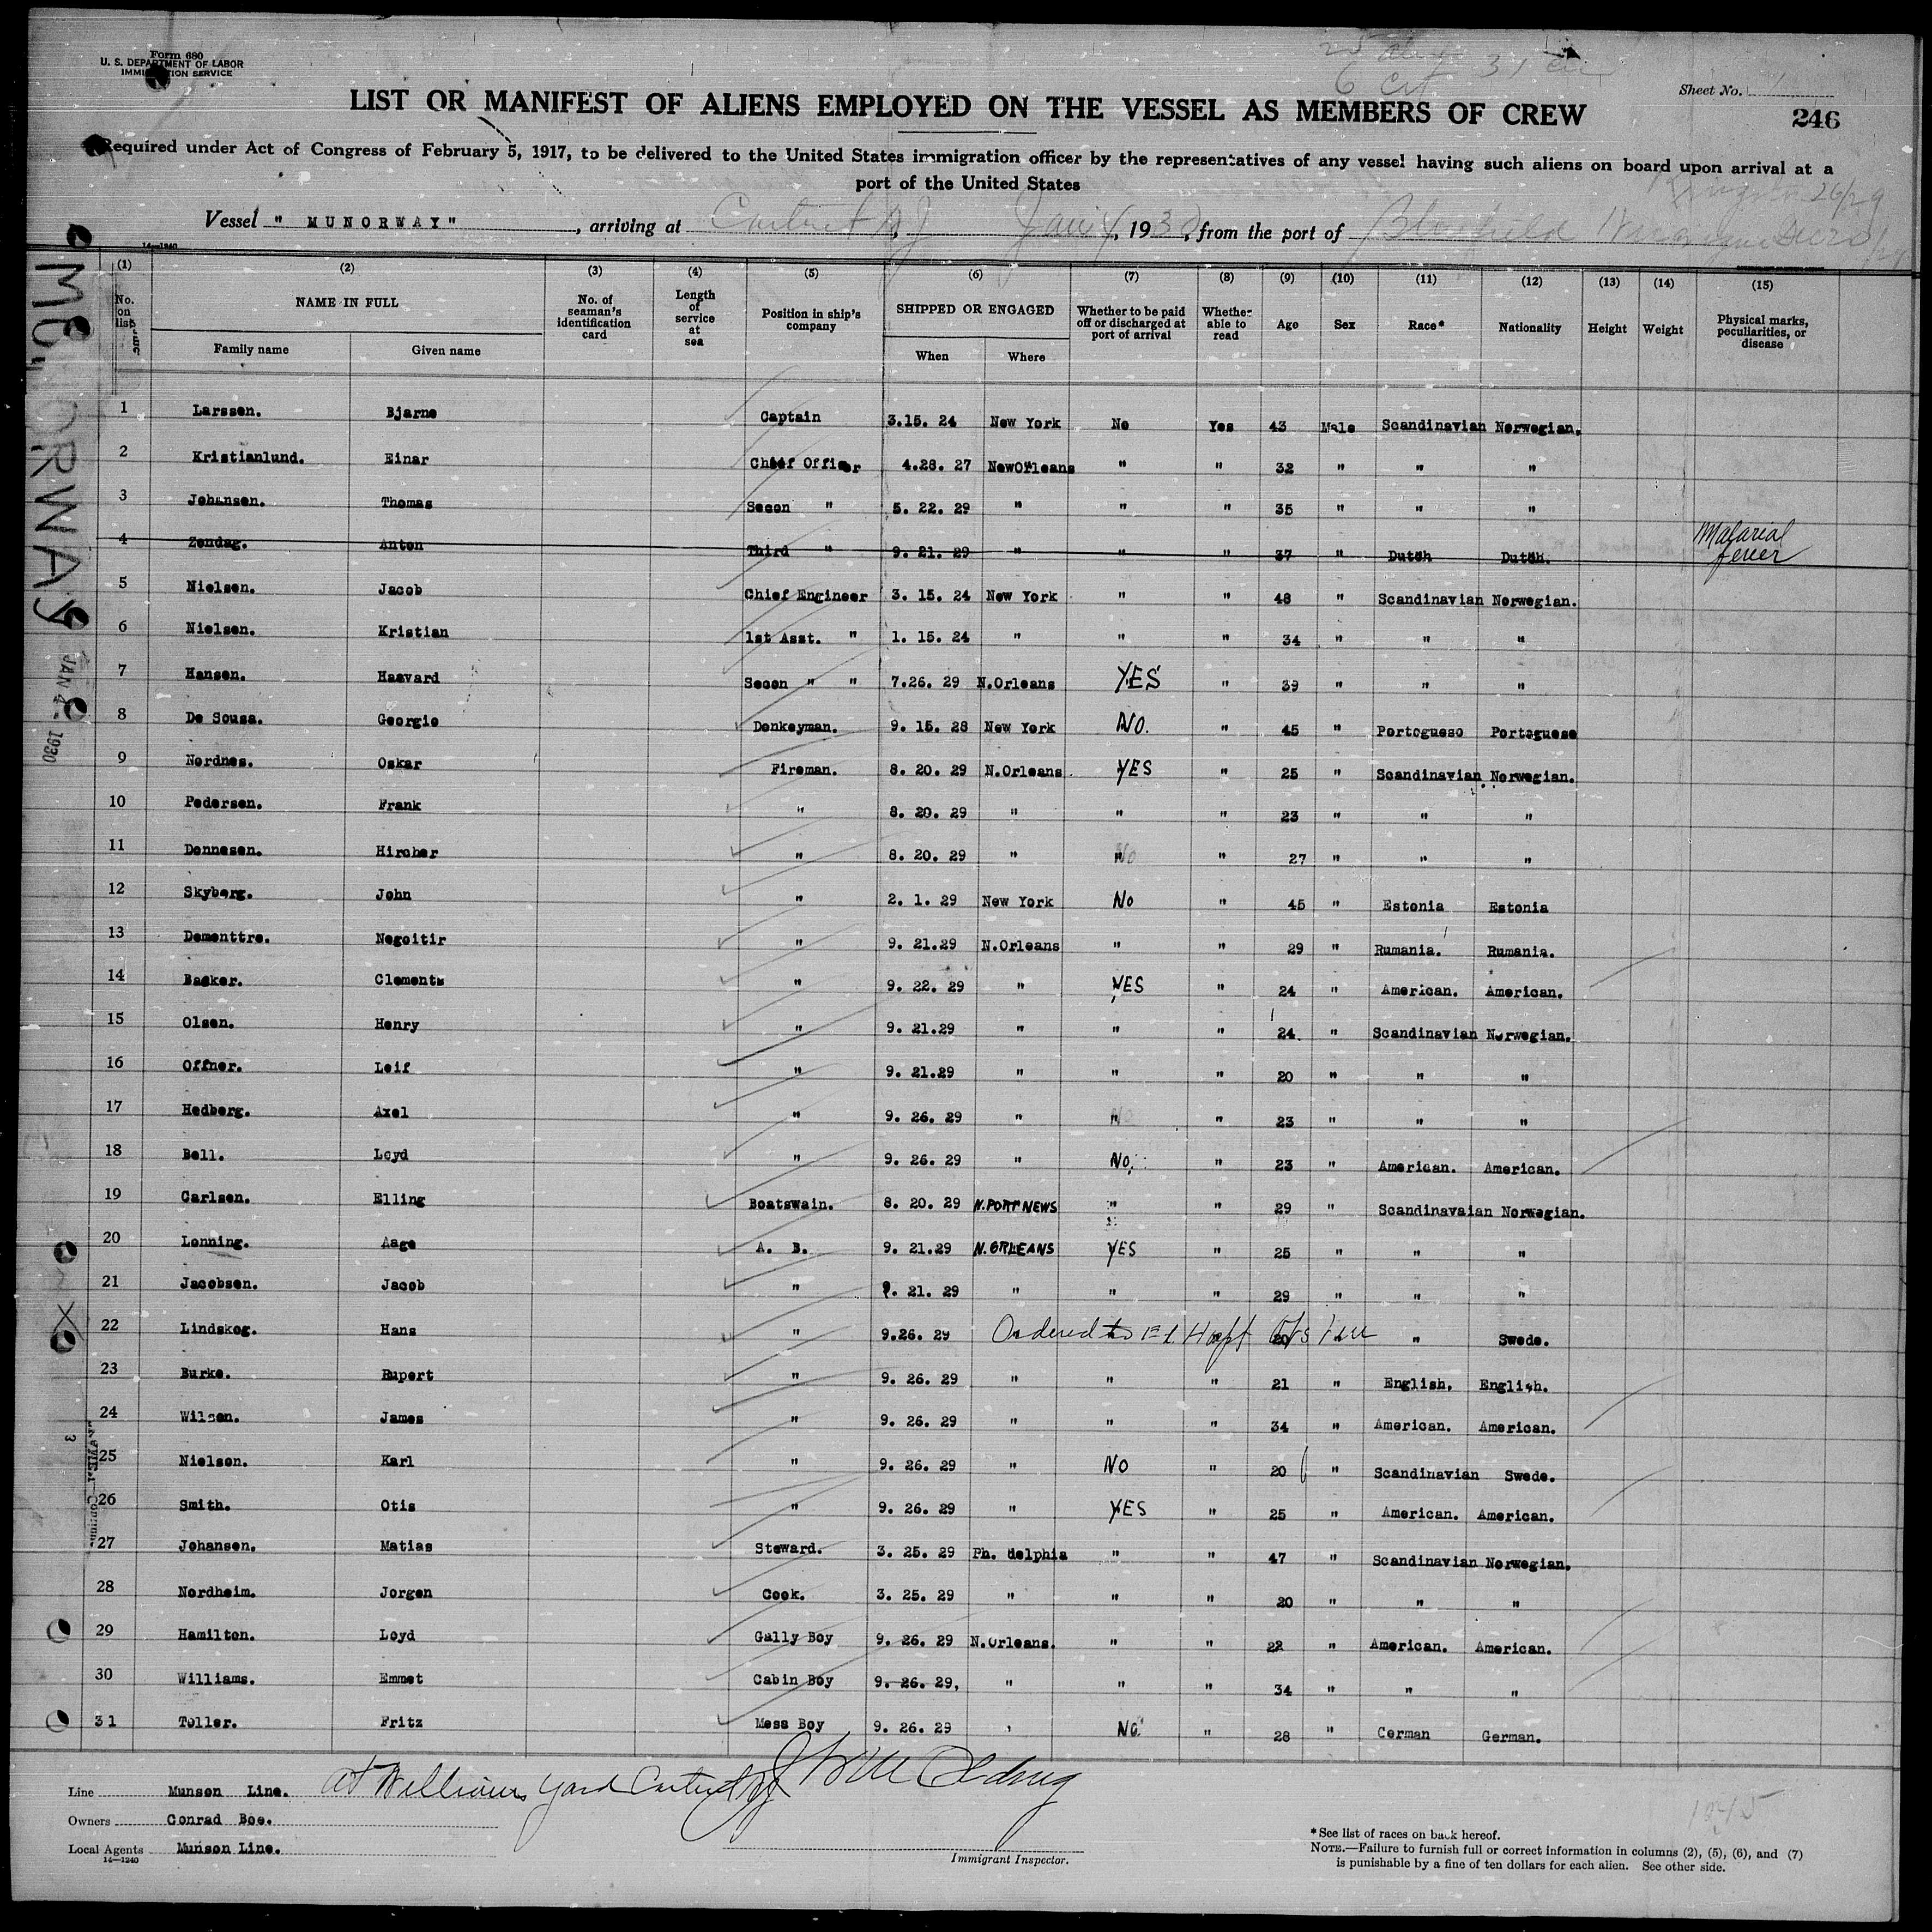 Form 680
U. S. DEPARTMENT OF LABOR
IMMIGRATION SERVICE
6 Cit
Sheet No. 1
246
LIST OR MANIFEST OF ALIENS EMPLOYED ON THE VESSEL AS MEMBERS OF CREW
Required under Act of Congress of February 5, 1917, to be delivered to the United States immigration officer by the representatives of any vessel having such aliens on board upon arrival at a
port of the United States
Vessel " MUNORWAY " , arriving at Carteret NJ , Jan 4, 1930, from the port of
14—1240
MUNORWAY
JAN 4 - 1930
(1) (2) (3) (4) (5) (6) (7) (8) (9) (10) (11) (12) (13) (14) (15)
No. on list NAME IN FULL No. of seaman's identification card Length of service at sea Position in ship's company SHIPPED OR ENGAGED Whether to be paid off or discharged at port of arrival Whether able to read Age Sex Race* Nationality Height Weight Physical marks, peculiarities, or disease
Family name Given name When Where
1 Larssen. Bjarne Captain 3.15. 24 New York No Yes 43 Male Scandinavian Norwegian.
2 Kristianlund. Einar Chief Officer 4.28. 27 NewOrleans " " 32 " " "
3 Johansen. Thomas Secon " 5. 22. 29 " " " 35 " " "
4 Zondag. Anton Third " 9. 21. 29 " " " 37 " Dutch Dutch. Malarial fever
5 Nielsen. Jacob Chief Engineer 3. 15. 24 New York " " 48 " Scandinavian Norwegian.
6 Nielsen. Kristian 1st Asst. " 1. 15. 24 " " " 34 " " "
7 Hansen. Haavard Secon " " 7.26. 29 N.Orleans YES " 39 " " "
8 De Sousa. Georgio Donkeyman. 9. 15. 28 New York NO. " 45 " Portogueso Portoguese
9 Nordnes. Oskar Fireman. 8. 20. 29 N.Orleans. YES " 25 " Scandinavian Norwegian.
10 Pedersen. Frank " 8. 20. 29 " " " 23 " " "
11 Donnesen. Hircher " 8. 20. 29 " No " 27 " " "
12 Skyberg. John " 2. 1. 29 New York No " 45 " Estonia Estonia
13 Dementtre. Negoitir " 9. 21.29 N.Orleans " " 29 " Rumania. Rumania.
14 Basker. Clements " 9. 22. 29 " YES " 24 " American. American.
15 Olsen. Henry " 9. 21.29 " " " 24. " Scandinavian Norwegian.
16 Offner. Leif " 9. 21.29 " " " 20 " " "
17 Hedberg. Axel " 9. 26. 29 " No " 23 " " "
18 Bell. Loyd " 9. 26. 29 " No. " 23 " American. American.
19 Carlsen. Elling Boatswain. 8. 20. 29 N.PORT NEWS " " 29 " Scandinavaian Norwegian.
20 Lonning. Aage A. B. 9. 21.29 N.ORLEANS YES " 25 " " "
21 Jacobsen. Jacob " 9. 21. 29 " " " 29 " " "
22 Lindskog. Hans " 9.26. 29 Ordered to 20 " Swede.
23 Burke. Rupert " 9. 26. 29 " " " 21 " English. English.
24 Wilson. James " 9. 26. 29 " " " 34 " American. American.
25 Nielson. Karl " 9. 26. 29 " NO " 20 " Scandinavian Swede.
26 Smith. Otis " 9. 26. 29 " YES " 25 " American. American.
27 Johansen. Matias Steward. 3. 25. 29 Ph. delphia " " 47 " Scandinavian Norwegian.
28 Nordheim. Jorgen Cook. 3. 25. 29 " " " 20 " " "
29 Hamilton. Loyd Gally Boy 9. 26. 29 N.Orleans. " " 22 " American. American.
30 Williams. Emmet Cabin Boy 9. 26. 29, " " " 34 " " "
31 Toller. Fritz Mess Boy 9. 26. 29 ' NO. " 28 " German German.
Line Munson Line. at Williams yard Carteret NJ
Owners Conrad Boe.
Local Agents Munson Line.
14—1240
Immigrant Inspector.
* See list of races on back hereof.
NOTE.—Failure to furnish full or correct information in columns (2), (5), (6), and (7)
is punishable by a fine of ten dollars for each alien. See other side.